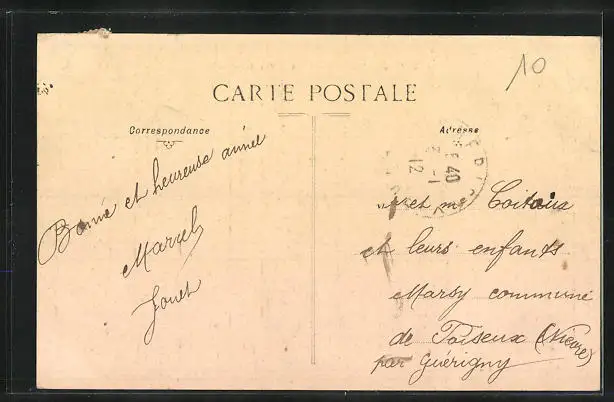 10
CARTE POSTALE
Correspondance
Adresse
Bonne et heureuse année
Marcel
Jouet
40
3-1
12
et me Coitoux
et leurs enfants
Marsy commune
de Poiseux (Nièvre)
par Guérigny